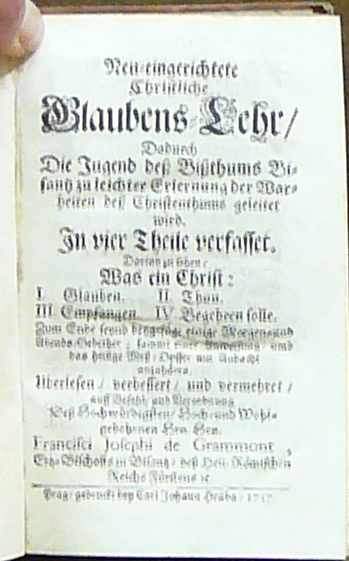 Neu-eingerichtete
Christliche
Glaubens-Lehr/
Dadurch
Die Jugend deß Bißthums Bi-
santz zu leichter Erlernung der War-
heiten deß Christenthums geleitet
wird.
In vier Theile verfasset.
Darinn zu sehen/
Was ein Christ:
I. Glauben. II. Thun.
III. Empfangen. IV. Begehren solle.
Zum Ende seynd beygefügt einige Morgens-und
Abends-Gebether / sammt einer Anweisung / und
das heilige Meß-Opffer mit Andacht
anzuhören.
Uberlesen / verbessert / und vermehret /
auff Befehl / und Verordnung
Deß Hochwürdigsten / Hoch- und Wohl-
gebohrnen Hrn. Hrn.
Francisci Josephi de Grammont,
Ertz-Bischoffs in Bisantz / deß Heil. Römischen
Reichs Fürstens ꝛc.
Prag / gedruckt bey Carl Johann Hraba /